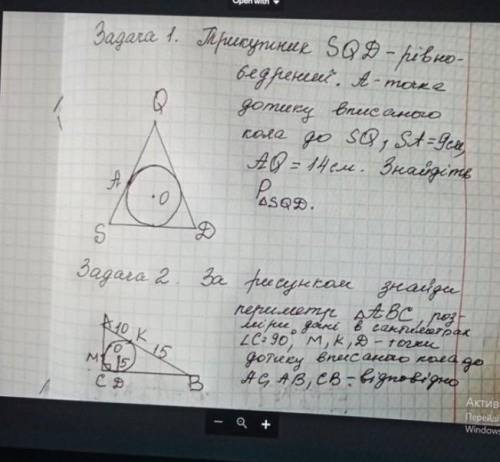 Open with
Задача 1. Трикутник SQD - рівно-
бедрений. A - точка
дотику вписаного
кола до SQ, SA=9см,
AQ = 14 см. Знайдіть
P△SQD.
Q
A
O
S
D
Задача 2. За рисунком знайди
периметр △ABC, роз-
міри дані в сантиметрах
∠C=90, M, K, D - точки
дотику вписаного кола до
AC, AB, CB - відповідно
A
10
K
O
15
M
5
C D
B
Актив
Перейді
Windows